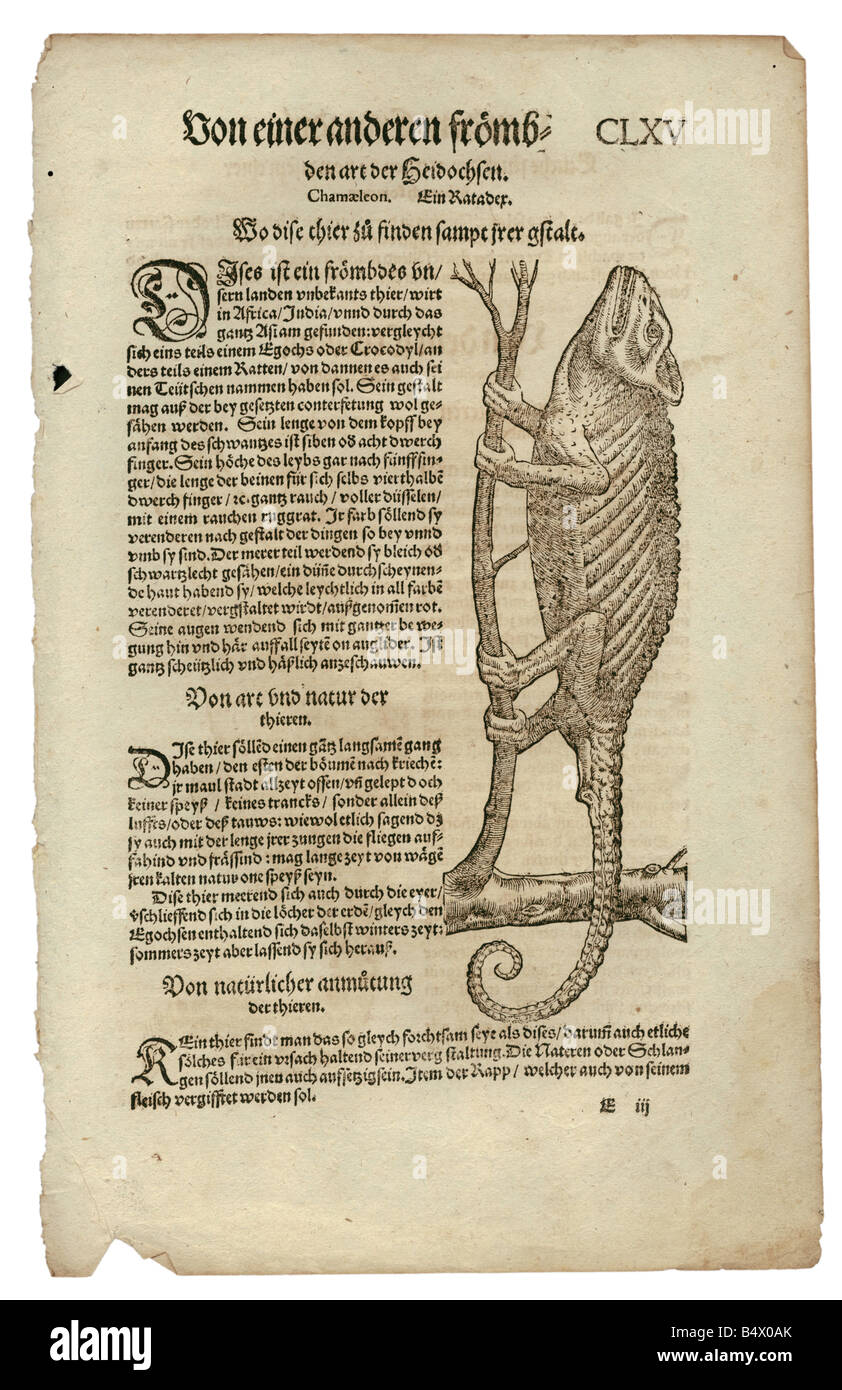 Von einer anderen frömb⸗ CLXV
den art der Heidochsen.
Chamæleon. Ein Ratadex.
Wo dise thier zů finden sampt jrer gstalt.
DIses ist ein frömbdes vn/
sern landen vnbekants thier/wirt
in Africa/India/vnnd durch das
gantz Asiam gefunden:vergleycht
sich eins teils einem Egochs oder Crocodyl/an
ders teils einem Ratten/von dannen es auch sei
nen Teütschen nammen haben sol. Sein gestalt
mag auß der bey gesetzten conterfetung wol ge⸗
sähen werden. Sein lenge von dem kopff bey
anfang des schwantzes ist siben od acht dwerch
finger. Sein höche des leybs gar nach fünff fin⸗
ger/die lenge der beinen für sich selbs vierthalben
dwerch finger/ꝛc.gantz rauch/voller düsselen/
mit einem rauchen ruggrat. Jr farb söllend sy
verenderen nach gestalt der dingen so bey vnnd
vmb sy sind.Der merer teil werdend sy bleich od
schwartzlecht gesähen/ein dün̄e durchscheynen⸗
de haut habend sy/welche leychtlich in all farbē
verenderet/vergstaltet wirdt/außgenom̄en rot.
Seine augen wendend sich mit gantzer bewe⸗
gung hin vnd här auff all seytē on auglider. Ist
gantz scheützlich vnd häßlich anzeschauwen.
Von art vnd natur der
thieren.
DIse thier söllēd einen gātz langsamē gang
haben/den esten der böumē nach kriechē:
jr maul stadt allzeyt offen/vn̄ gelept doch
keiner speyß/keines trancks/sonder allein deß
luffts/oder deß tauws: wiewol etlich sagend dz
sy auch mit der lenge jrer zungen die fliegen auf⸗
fahind vnd frässind:mag lange zeyt von wägē
jren kalten natur one speyß seyn.
Dise thier meerend sich auch durch die eyer/
vschlieffend sich in die löcher der erdē/gleych den
Egochsen enthaltend sich daselbst winters zeyt:
sommers zeyt aber lassend sy sich herauß.
Von natürlicher anmůtung
der thieren.
KEin thier finde man das so gleych forchtsam seye als dises/darum̄ auch etliche
sölches für ein vrsach haltend seiner vergstaltung.Die Nateren oder Schlan⸗
gen söllend jnen auch aufsetzig sein.Item der Rapp/welcher auch von seinem
fleisch vergifftet werden sol.
E iij
alamy
Image ID: B4X0AK
www.alamy.com